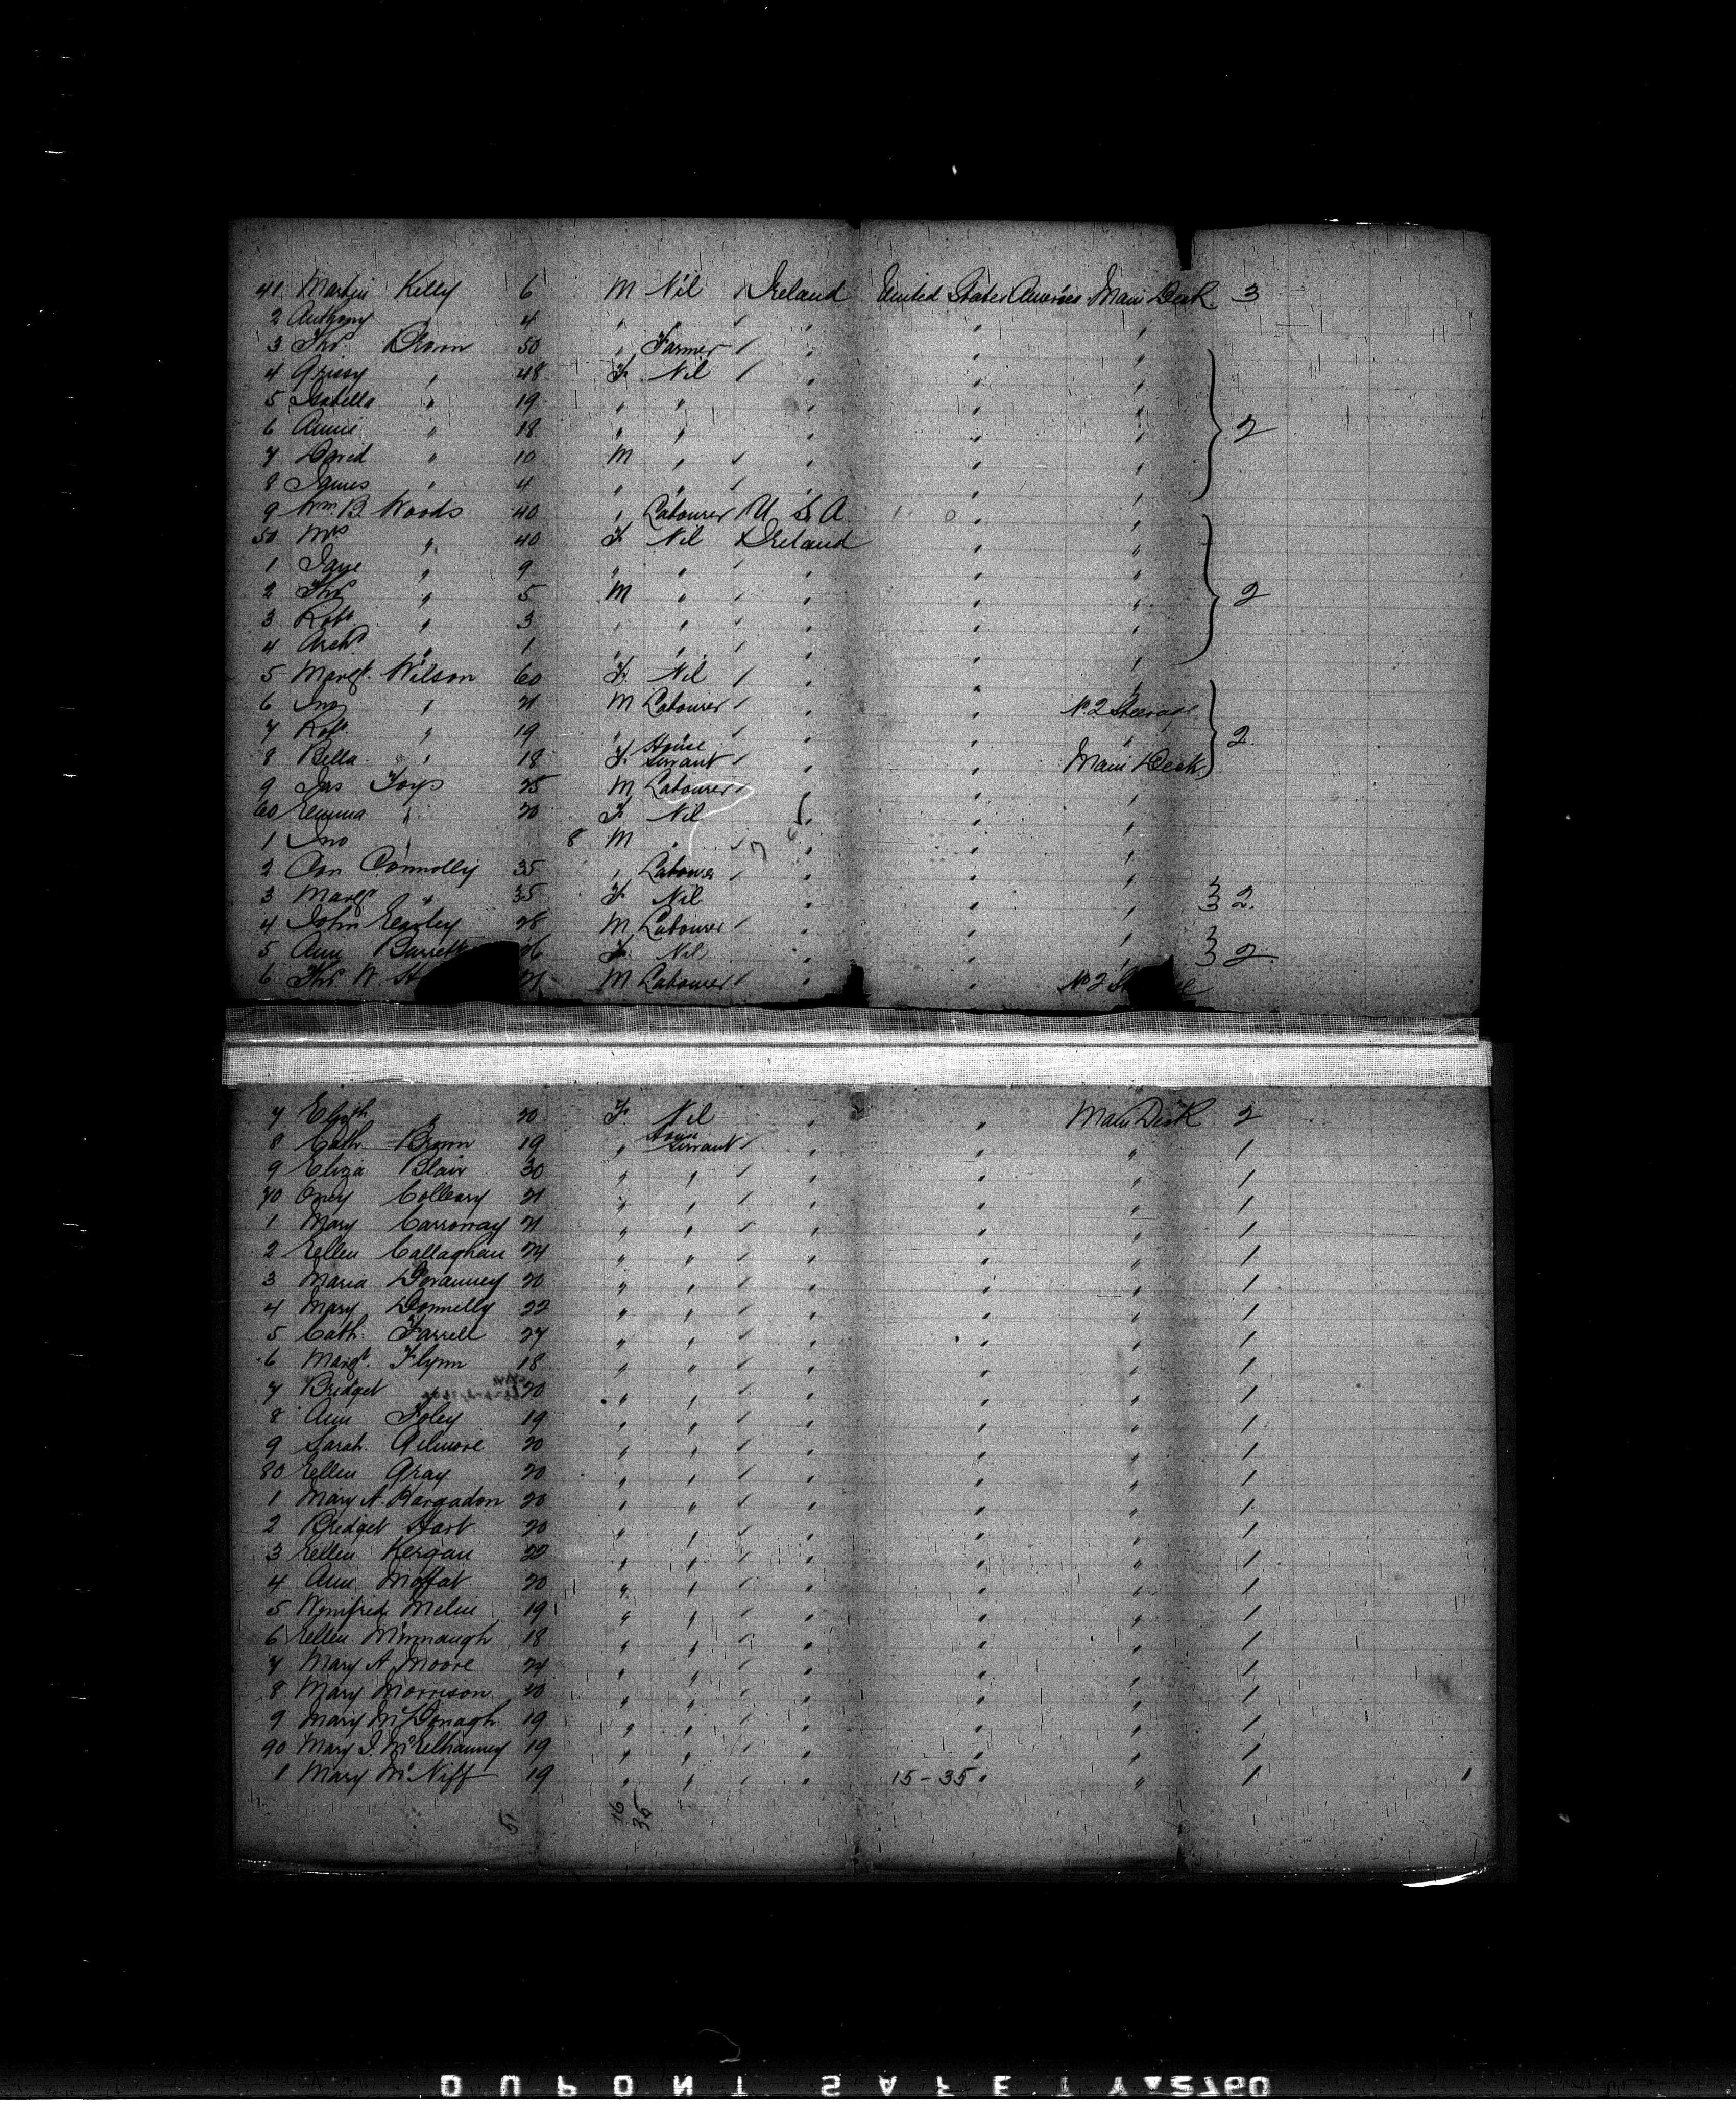 41 Martin Kelly 6 M Nil Ireland United States America Main Deck 3
2 Anthony 4 " " " "
3 Thos. Brown 50 " Farmer " " "
4 Grissy " 48 F Nil " " "
5 Isabella " 19 " " " " "
6 Annie " 18 " " " " " 2
7 David " 10 M " " " "
8 James " 4 " " " " "
9 Wm. B. Woods 40 " Labourer U S A " "
50 Mrs " 40 F Nil Ireland " "
1 Jane " 9 " " " " "
2 Thos " 5 M " " " " 2
3 Robt. " 3 " " " " "
4 Archd " 1 " " " " "
5 Margt. Wilson 60 F Nil " " "
6 Jno " 21 M Labourer " " No. 2 Steerage
7 Robt. " 19 " " " " " 2
8 Bella " 18 F House Servant " " Main Deck
9 Jas Foys 25 M Labourer " " "
60 Emma " 20 F Nil " " "
1 Jno " 8 M " " " "
2 Con Connolly 35 " Labourer " " "
3 Margt " 35 F Nil " " " 2
4 John Earley 28 M Labourer " " "
5 Ann Barrett 26 F Nil " " " 2
6 Thos. W. 21 M Labourer " " No 2
7 Elizth " 20 F Nil " " Main Deck 2
8 Cath. Brown 19 " House Servant " " " 1
9 Eliza Blair 30 " " " " " 1
70 Oney Colleary 21 " " " " " 1
1 Mary Carroway 21 " " " " " 1
2 Ellen Callaghan 24 " " " " " 1
3 Maria 20 " " " " " 1
4 Mary Donnelly 22 " " " " " 1
5 Cath. Farrell 27 " " " " " 1
6 Margt. Flynn 18 " " " " " 1
7 Bridget " 20 " " " " " 1
8 Ann Foley 19 " " " " " 1
9 Sarah Gilmore 20 " " " " " 1
80 Ellen Gray 20 " " " " " 1
1 Mary A. Hargadon 20 " " " " " 1
2 Bridget Hart 20 " " " " " 1
3 Ellen Kergan 22 " " " " " 1
4 Ann Moffat 20 " " " " " 1
5 Winifred Melin 19 " " " " " 1
6 Ellen Minnaugh 18 " " " " " 1
7 Mary A. Moore 24 " " " " " 1
8 Mary Morrison 20 " " " " " 1
9 Mary McDonagh 19 " " " " " 1
90 Mary J. McElhanney 19 " " " " " 1
1 Mary McNiff 19 " " " 15-35 " " 1
5 16 35
DUPONT SAFETY 2760